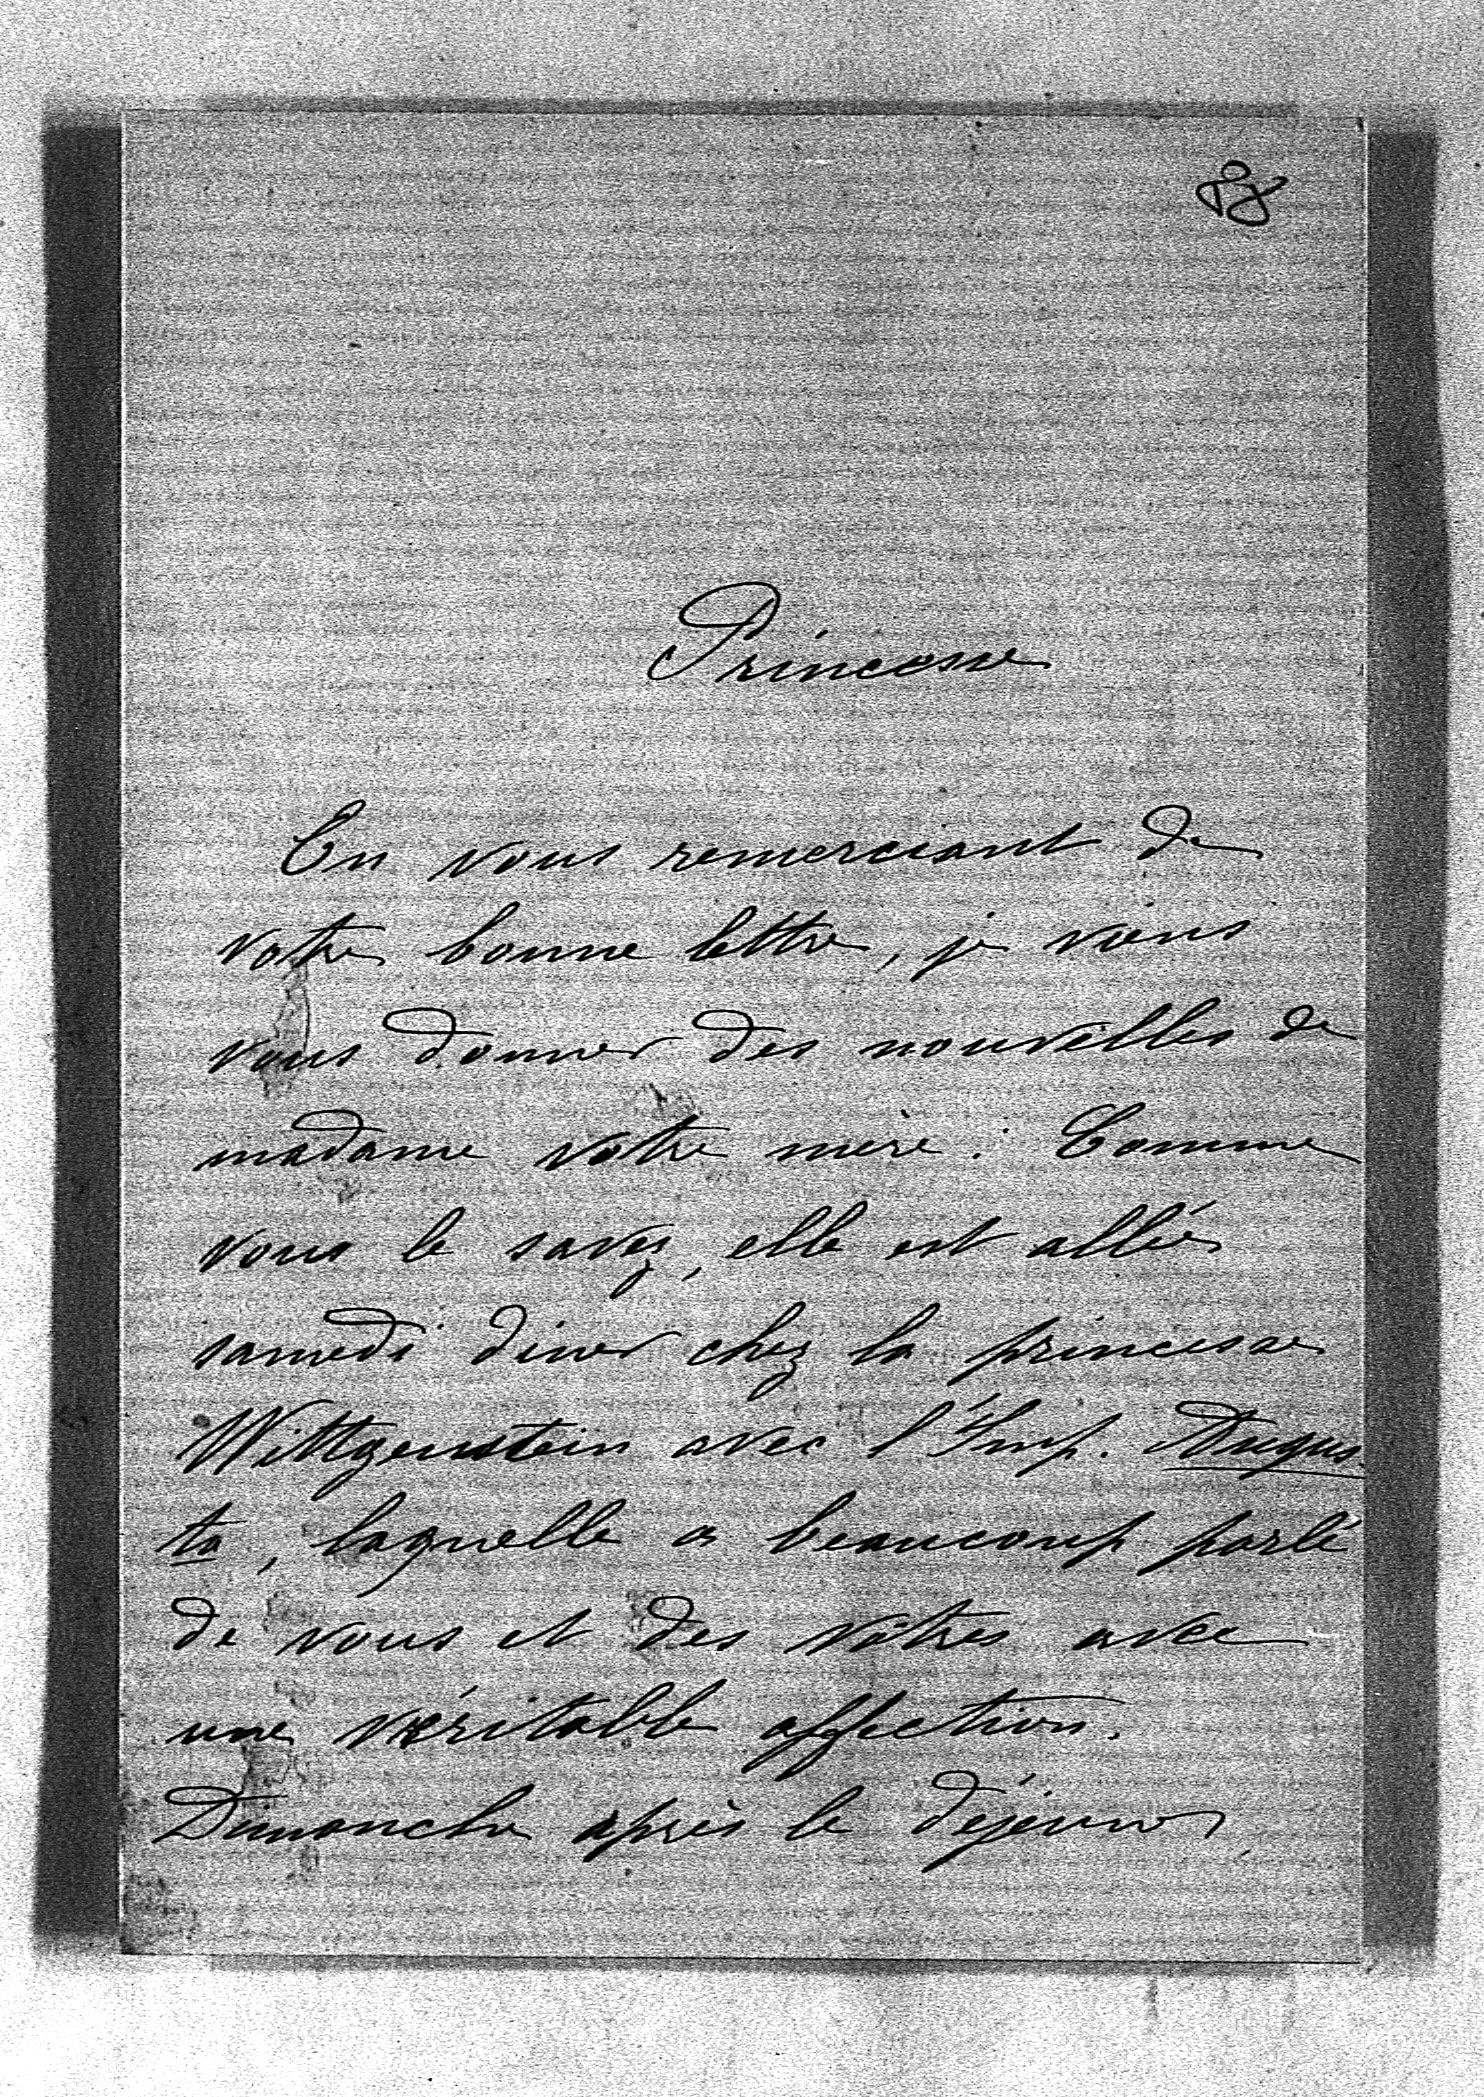 88
Princesse
En vous remerciant de
votre bonne lettre, je viens
vous donner des nouvelles de
madame votre mère : Comme
vous le savez, elle est allée
samedi diner chez la princesse
Wittgenstein avec l'Imp. Augus-
ta, laquelle a beaucoup parlé
de vous et des vôtres avec
une véritable affection.
Dimanche après le déjeuner,